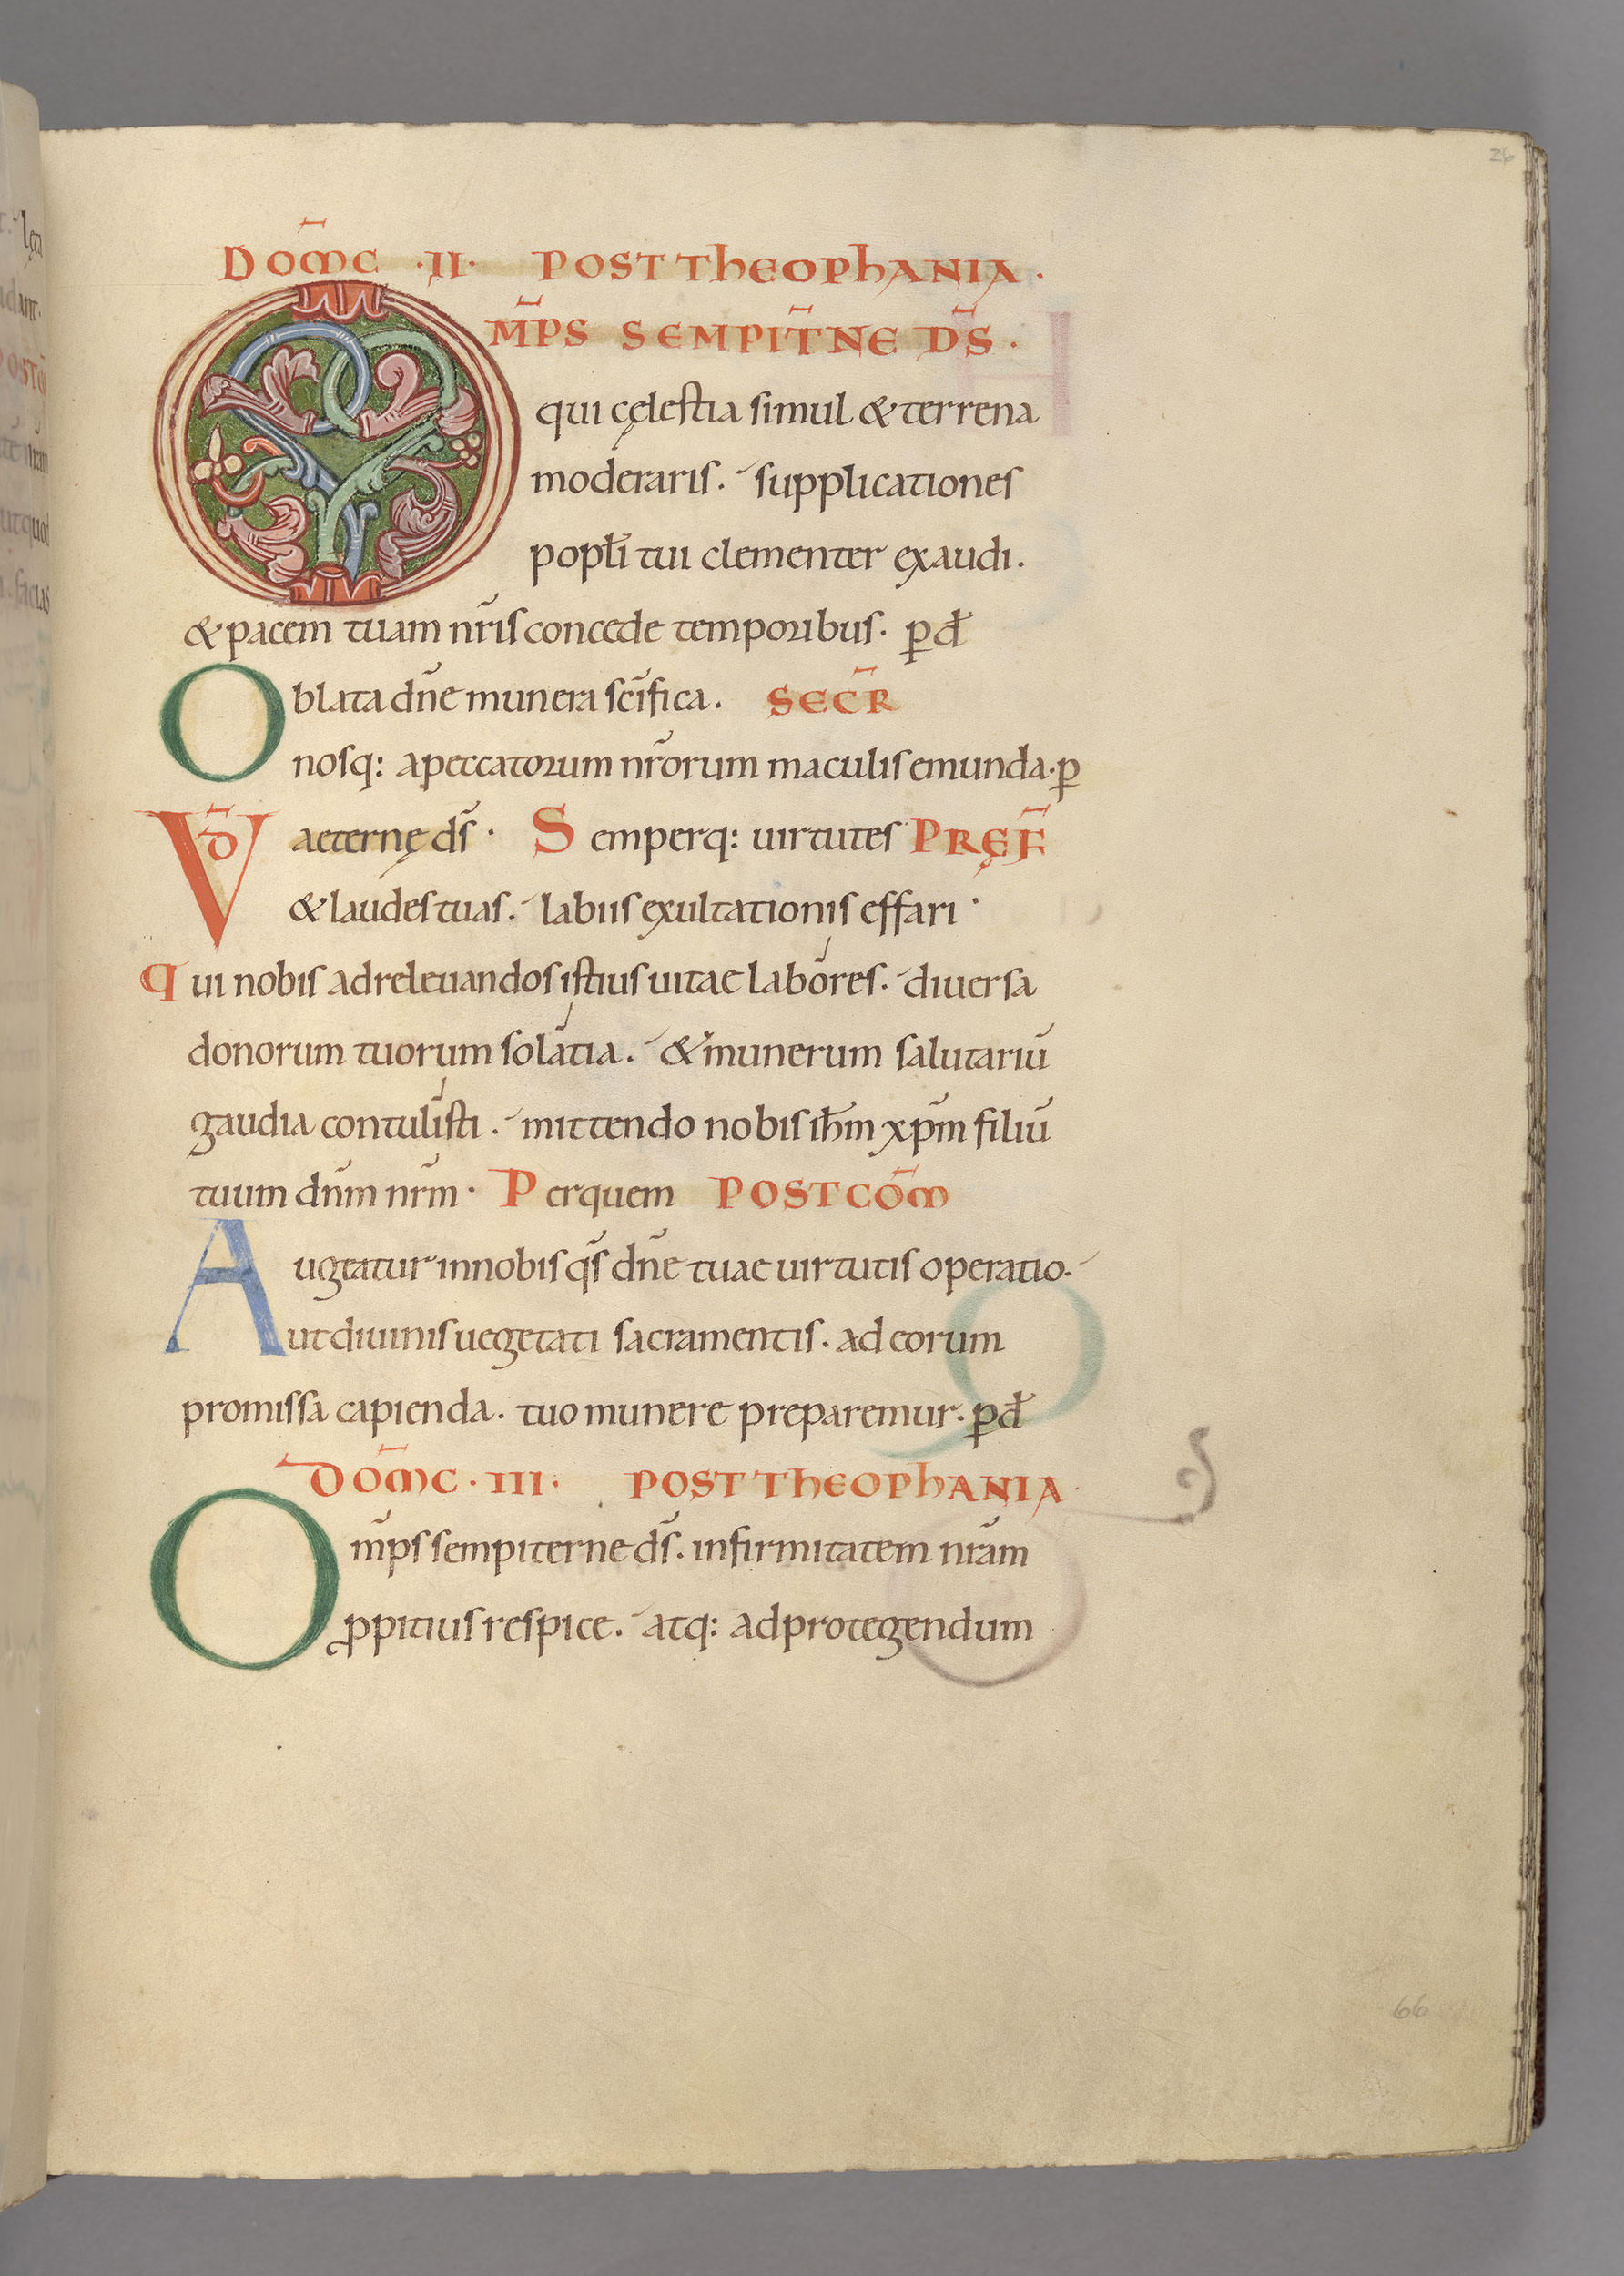 26
DOM̄C ·II· POST THEOPHANIA·
OM̄PS SEMPIT̄NE DS̄·
qui cęlestia simul & terrena
moderaris. supplicationes
popl̄i tui clementer exaudi.
& pacem tuam nr̄is concede temporibus. p̄ d̄
Oblata dn̄e munera sc̄ifica. SECR̄
nosq: a peccatorum nr̄orum maculis emunda. p̄
VD̄ aeternę ds̄· Semperq: uirtutes PRĘF̄
& laudes tuas. labiis exultationis effari·
qui nobis ad releuandos istius uitae labores. diuersa
donorum tuorum solatia. & munerum salutariū
gaudia contulisti. mittendo nobis ih̄m xp̄m filiū
tuum dn̄m nr̄m. Per quem POST COM̄
Augeatur in nobis qs̄ dn̄e tuae uirtutis operatio.
ut diuinis uegetati sacramentis. ad eorum
promissa capienda. tuo munere preparemur. p̄ d̄
DOM̄C·III· POST THEOPHANIA·
Om̄ps sempiterne ds̄. infirmitatem nr̄am
ꝓpitius respice. atq: ad protegendum
66